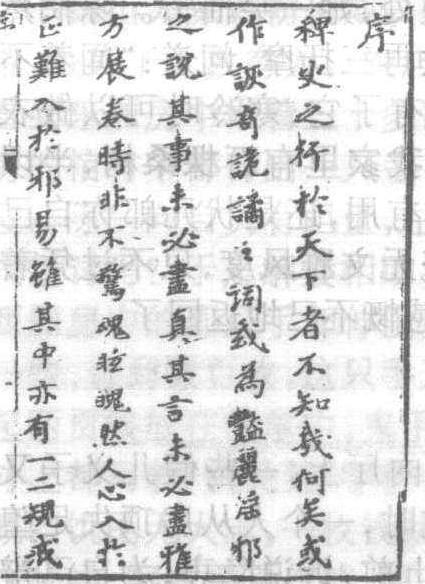 序
稗史之行於天下者不知幾何矣或
作詼奇詭譎之詞或為豔麗淫邪
之說其事未必盡真其言未必盡雅
方展卷時非不驚魂眩魄然人心入於
正難入於邪易雖其中亦有一二規戒